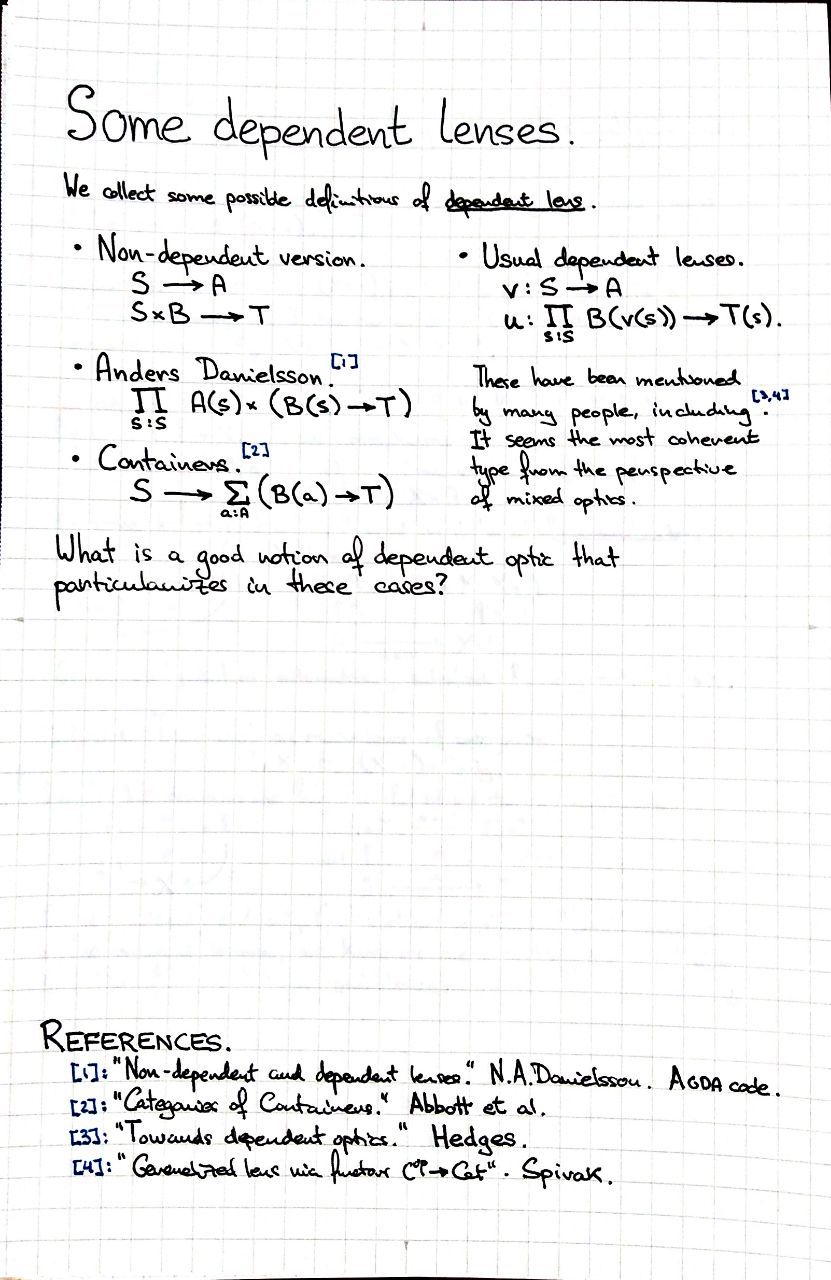 Some dependent lenses.
We collect some possible definitions of dependent lens.
• Non-dependent version.
S → A
S×B → T
• Anders Danielsson.[1]
∏ A(s) × (B(s) → T)
s:S
• Containers.[2]
S → ∑ (B(a) → T)
a:A
• Usual dependent lenses.
v : S → A
u : ∏ B(v(s)) → T(s).
s:S
These have been mentioned
by many people, including[3,4].
It seems the most coherent
type from the perspective
of mixed optics.
What is a good notion of dependent optic that
particularizes in these cases?
REFERENCES.
[1]: "Non-dependent and dependent lenses." N.A.Danielsson. AGDA code.
[2]: "Categories of Containers." Abbott et al.
[3]: "Towards dependent optics." Hedges.
[4]: "Generalized lens via functors Cᵒᵖ→Cat". Spivak.